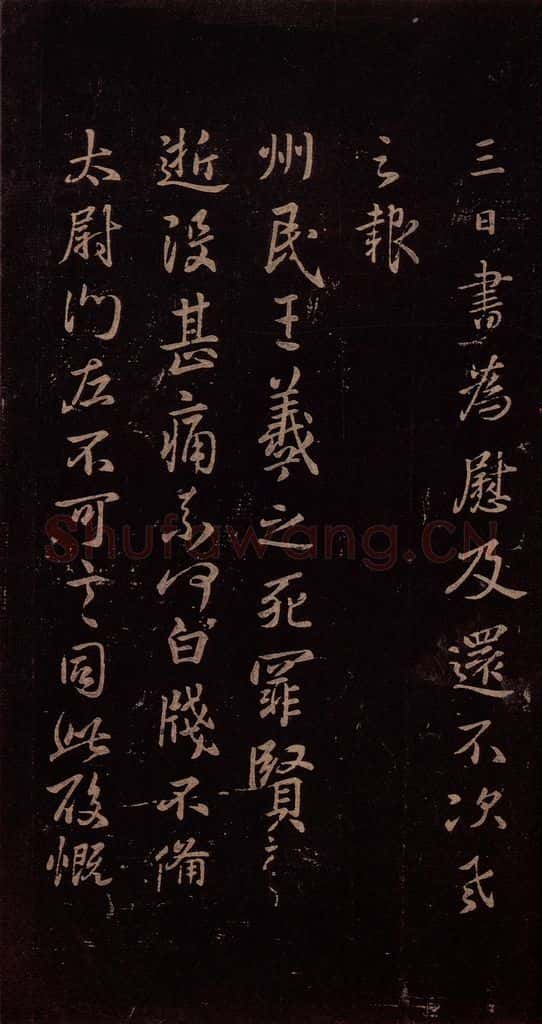 三日書為慰及還不次羲
之報
州民王羲之死罪賢
逝沒甚痛奈何白牋不備
太尉門左不可言同此酸慨
Shufawang.CN